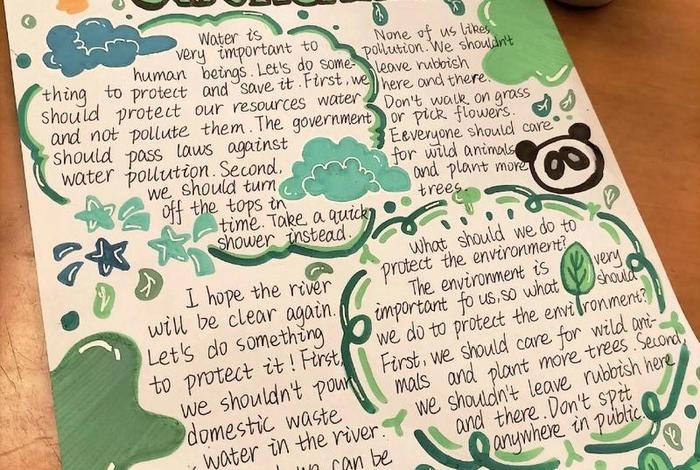 Water is
very important to
human beings. Let's do some-
thing to protect and save it. First, we
should protect our resources water
and not pollute them. The government
should pass laws against
water pollution. Second,
we should turn
off the tops in
time. Take a quick
shower instead.
None of us likes
pollution. We shouldn't
leave rubbish
here and there.
Don't walk on grass
or pick flowers.
Eeveryone should care
for wild animals
and plant more
trees.
I hope the river
will be clear again.
Let's do something
to protect it! First,
we shouldn't pour
domestic waste
water in the river.
can be
What should we do to
protect the environment?
The environment is very
important to us, so what should
we do to protect the environment?
First, we should care for wild ani-
mals and plant more trees. Second,
we shouldn't leave rubbish here
and there. Don't spit
anywhere in public